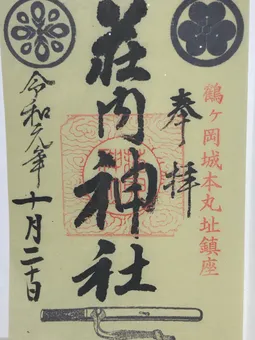 鶴ヶ岡城本丸址鎮座
奉拝
荘内神社
令和元年
十月二十日